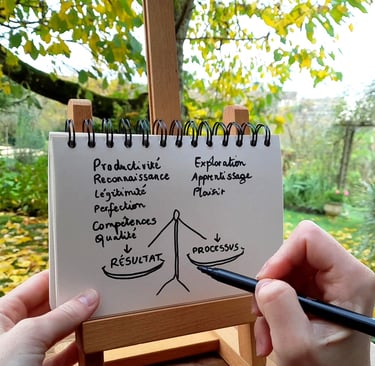 Productivité
Reconnaissance
Légitimité
Perfection
Compétences
Qualité
RÉSULTAT
Exploration
Apprentissage
Plaisir
PROCESSUS